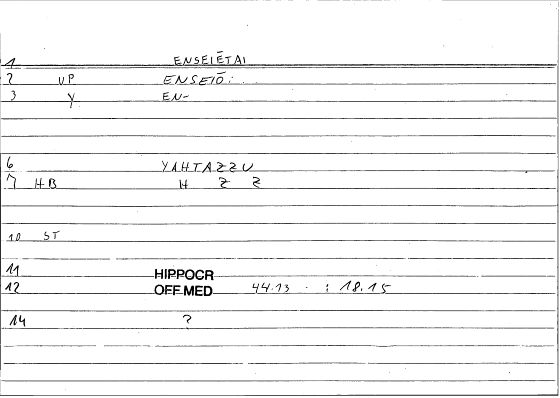 1 ENSEIĒTAI
2 UP ENSEIŌ: . .
3 Y EN-
6 YAHTAZZU
7 HB H Z Z
10 ST
11 HIPPOCR
12 OFF MED 44.13 · : 18.15
14 ?